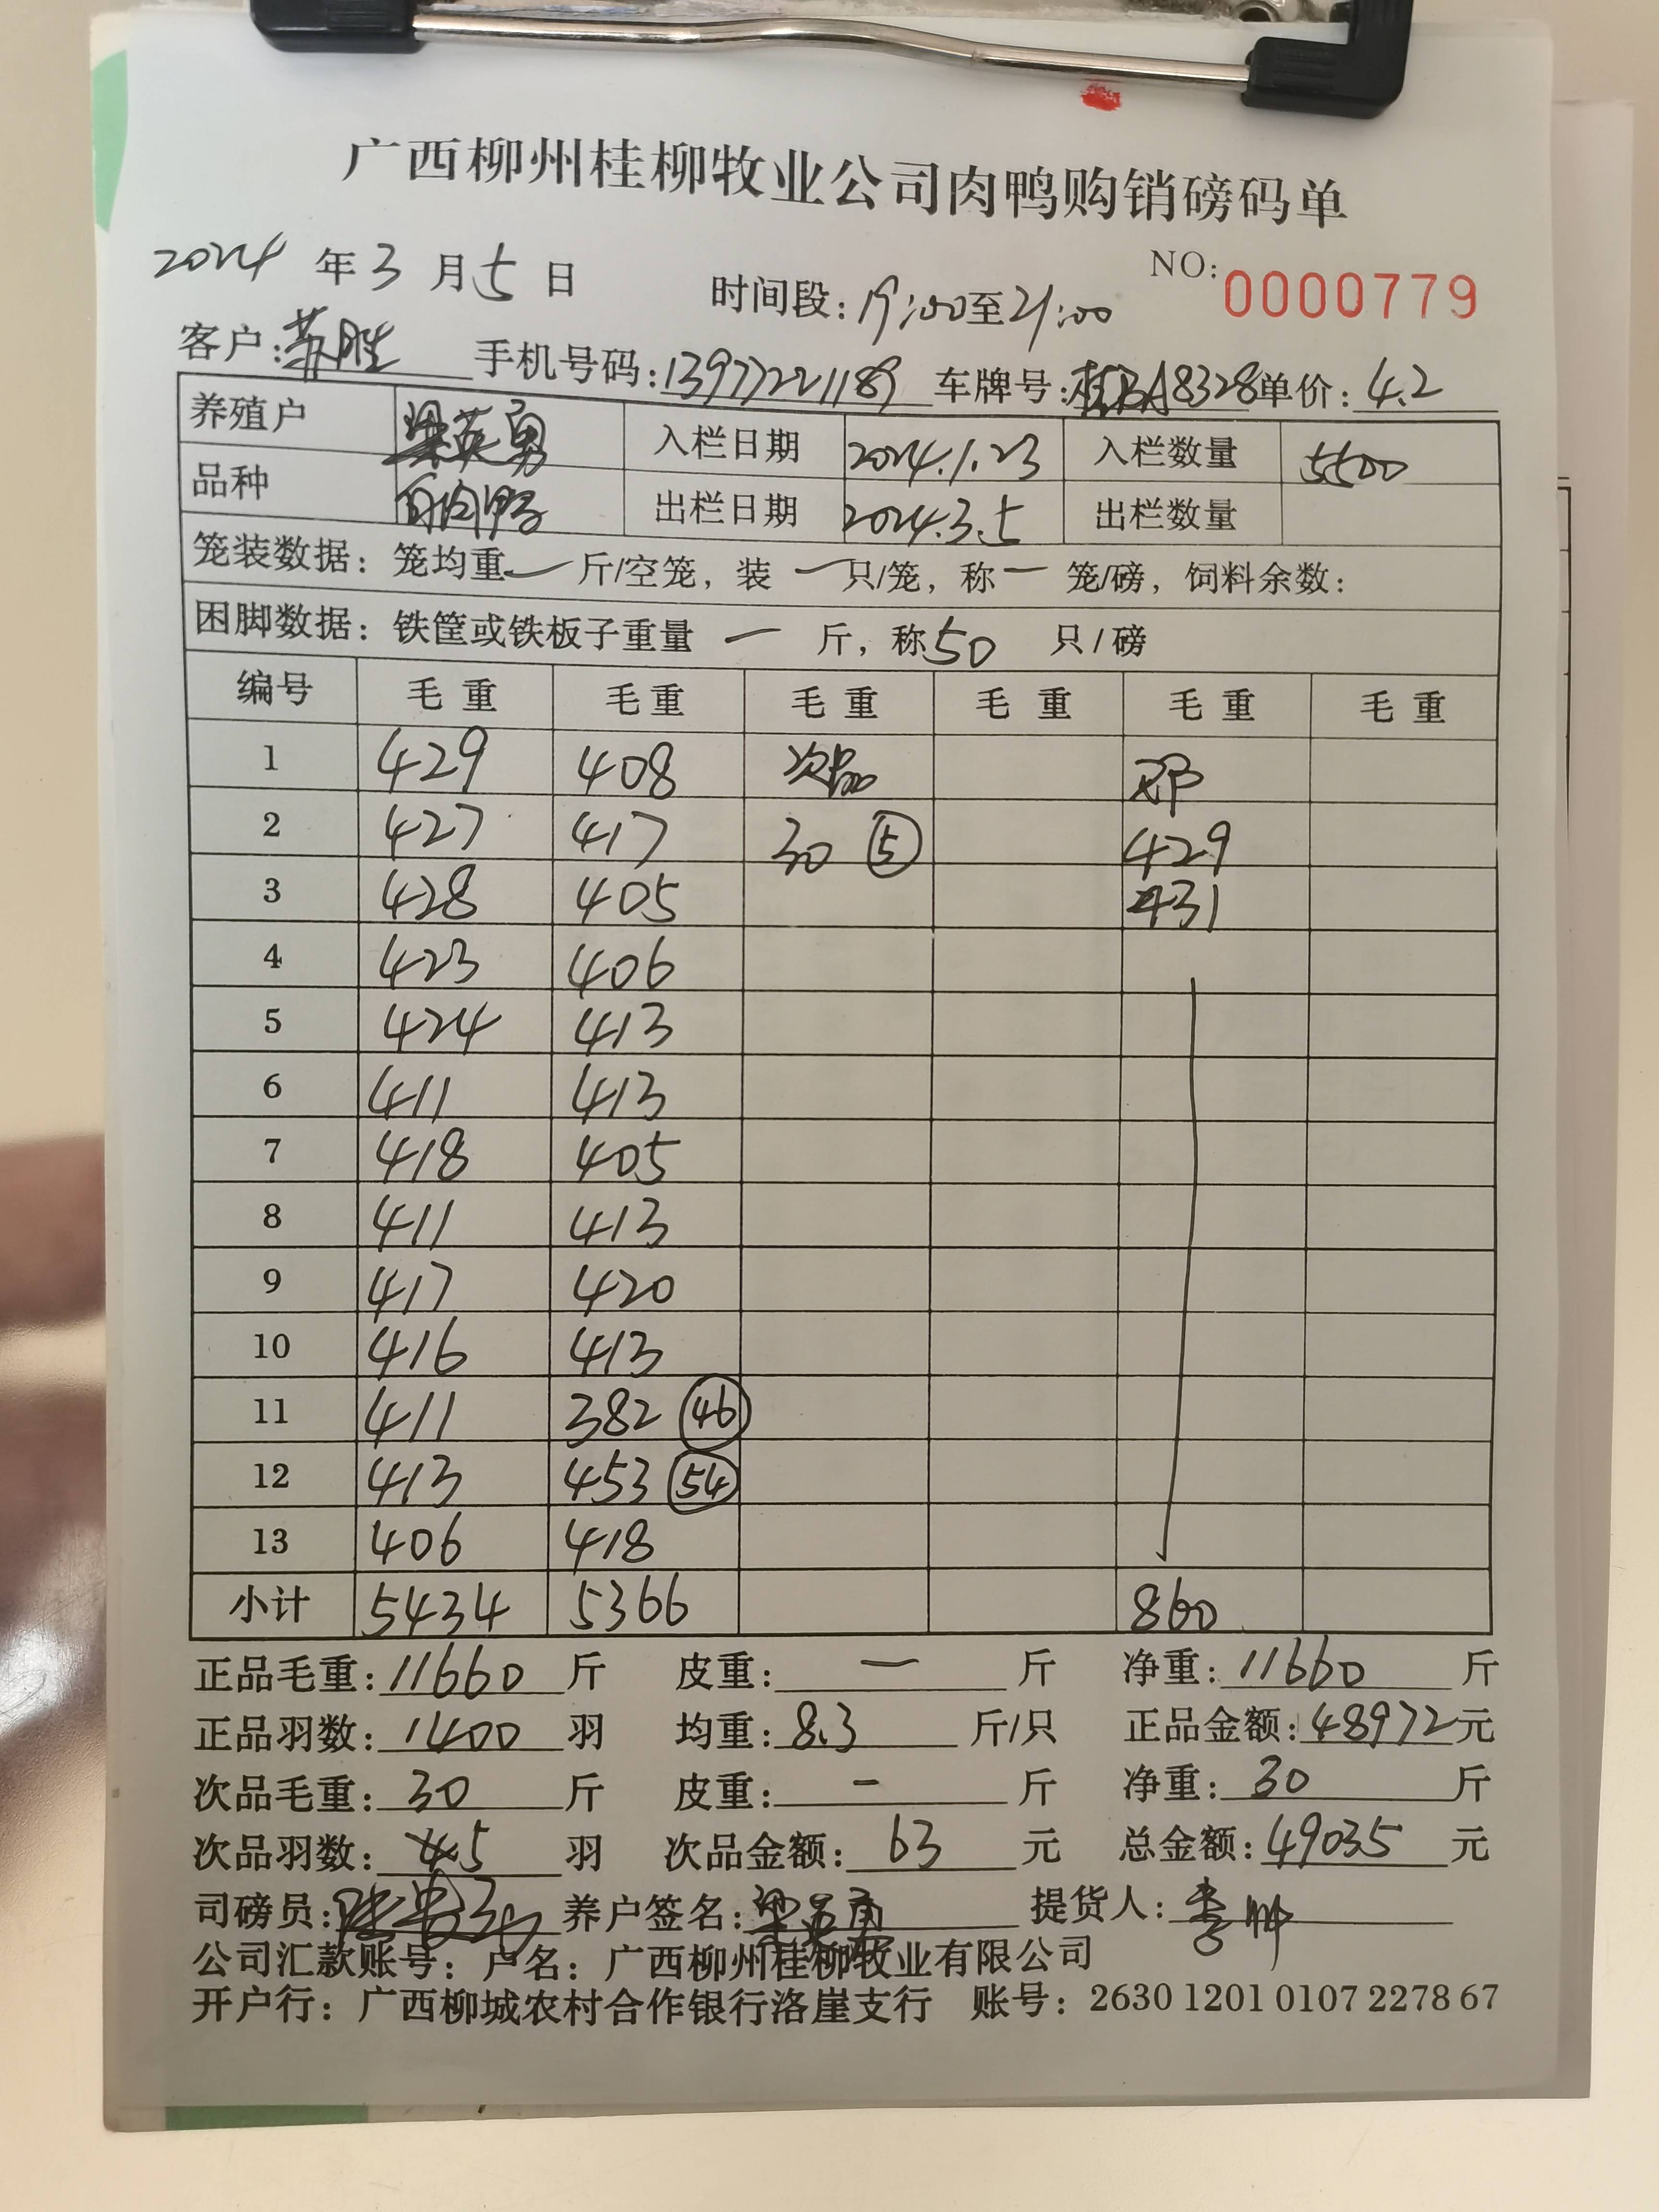 广西柳州桂柳牧业公司肉鸭购销磅码单
2024年3月5日 时间段:19:00至21:00 NO:0000779
客户:苏胜 手机号码:13977221189 车牌号:桂BA8328 单价:4.2
养殖户 梁英勇 入栏日期 2024.1.23 入栏数量 5500
品种 白肉鸭 出栏日期 2024.3.5 出栏数量
笼装数据:笼均重 一 斤/空笼,装 一 只/笼,称 一 笼/磅,饲料余数:
困脚数据:铁筐或铁板子重量 一 斤,称50只/磅
编号 毛重 毛重 毛重 毛重 毛重 毛重
1 429 408 次品 邓
2 427 417 30 ⑤ 429
3 428 405 431
4 423 406
5 424 413
6 411 413
7 418 405
8 411 413
9 417 420
10 416 413
11 411 382 46
12 413 453 54
13 406 418
小计 5434 5366 860
正品毛重:11660斤 皮重:一斤 净重:11660斤
正品羽数:1400羽 均重:8.3斤/只 正品金额:48972元
次品毛重:30斤 皮重:-斤 净重:30斤
次品羽数:5羽 次品金额:63元 总金额:49035元
司磅员: 养户签名:梁英勇 提货人:李帅
公司汇款账号:户名:广西柳州桂柳牧业有限公司
开户行:广西柳城农村合作银行洛崖支行 账号:2630 1201 0107 2278 67